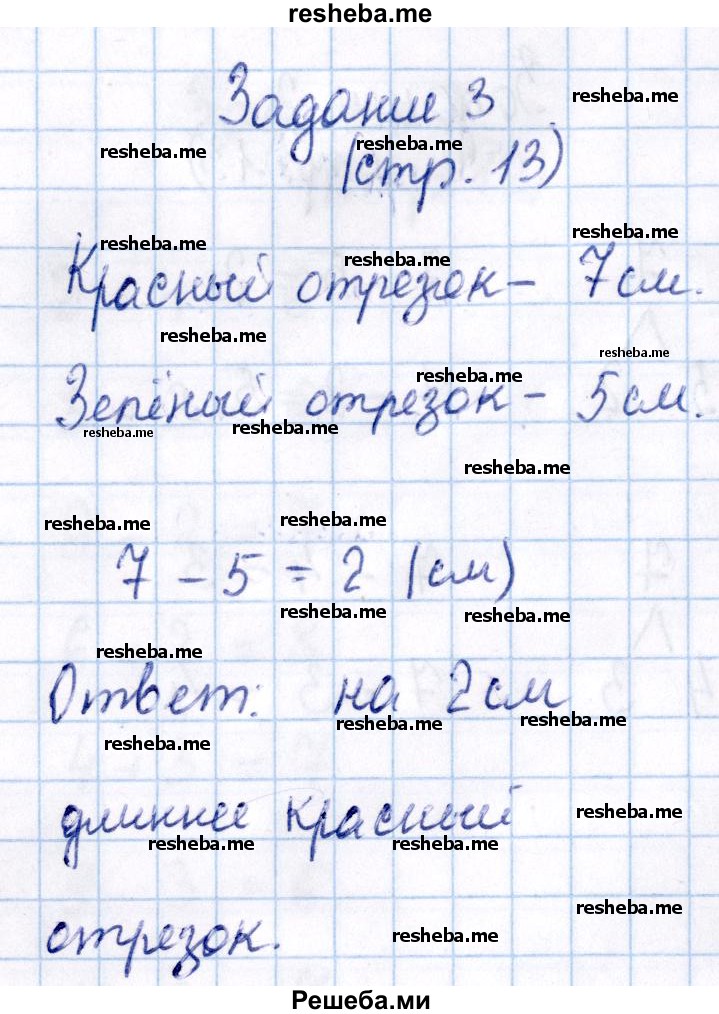 resheba.me
Задание 3
resheba.me
resheba.me resheba.me
(стр. 13)
resheba.me resheba.me
resheba.me
Красный отрезок - 7 см.
resheba.me resheba.me
resheba.me
Зелёный отрезок - 5 см.
resheba.me resheba.me
resheba.me
resheba.me resheba.me
7 - 5 = 2 (см)
resheba.me resheba.me
resheba.me
Ответ: на 2 см
resheba.me resheba.me
resheba.me
длиннее красный
resheba.me
resheba.me resheba.me
resheba.me
отрезок.
resheba.me
Решеба.ми